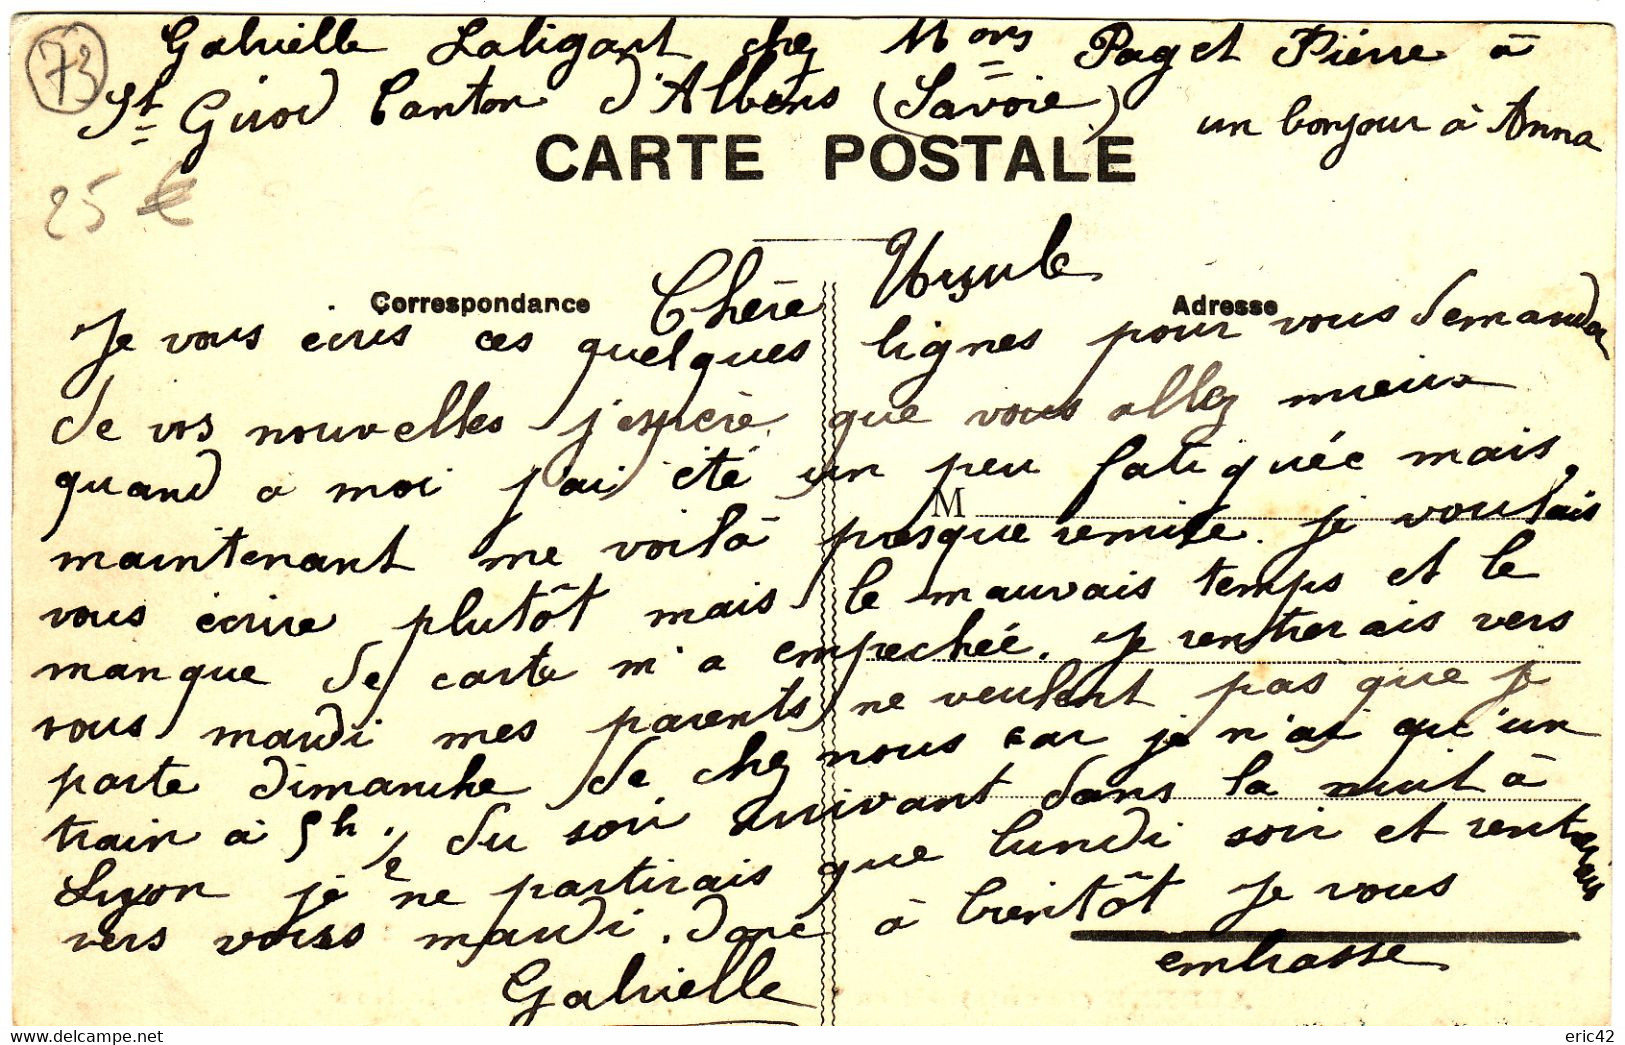 73
Gabrielle Laligant chez Mors Paget Pierre à
St Girod Canton d'Albens (Savoie)
un bonjour à Anna
CARTE POSTALE
25 €
Chère Ursule
Correspondance
Adresse
Je vous écris ces quelques lignes pour vous demander
de vos nouvelles j'espère que vous allez mieux
quand a moi j'ai été un peu fatiguée mais
M
maintenant me voilà presque remise. je voulais
vous écrire plutôt mais le mauvais temps et le
manque de carte m'a empechée. Je rentrerais vers
vous mardi mes parents ne veulent pas que je
parte dimanche de chez nous car je n'ai qu'un
train à 5h 1/2 du soir arrivant dans la nuit à
Lyon je ne partirais que lundi soir et rentrerais
vers vous mardi. donc à bientôt Je vous
embrasse
Gabrielle
www.delcampe.net
eric42